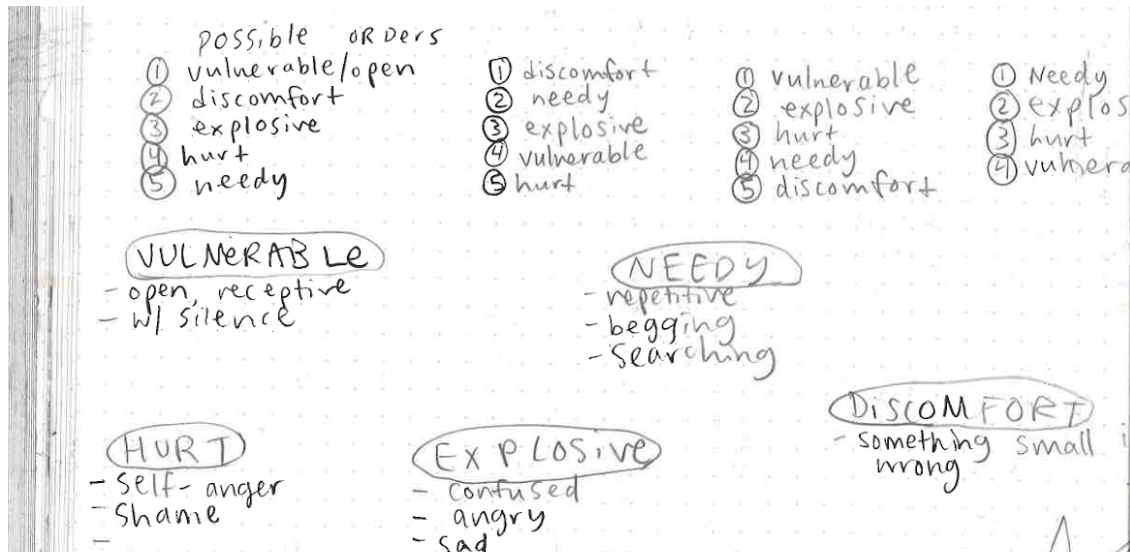 possible orders
① vulnerable/open
② discomfort
③ explosive
④ hurt
⑤ needy
① discomfort
② needy
③ explosive
④ vulnerable
⑤ hurt
① vulnerable
② explosive
③ hurt
④ needy
⑤ discomfort
① Needy
② explos
③ hurt
④ vulnera
VULNERABLE
- open, receptive
- w/ silence
NEEDY
- repetitive
- begging
- searching
DISCOMFORT
- something small i
wrong
HURT
- self-anger
- shame
-
EXPLOSIVE
- confused
- angry
- sad